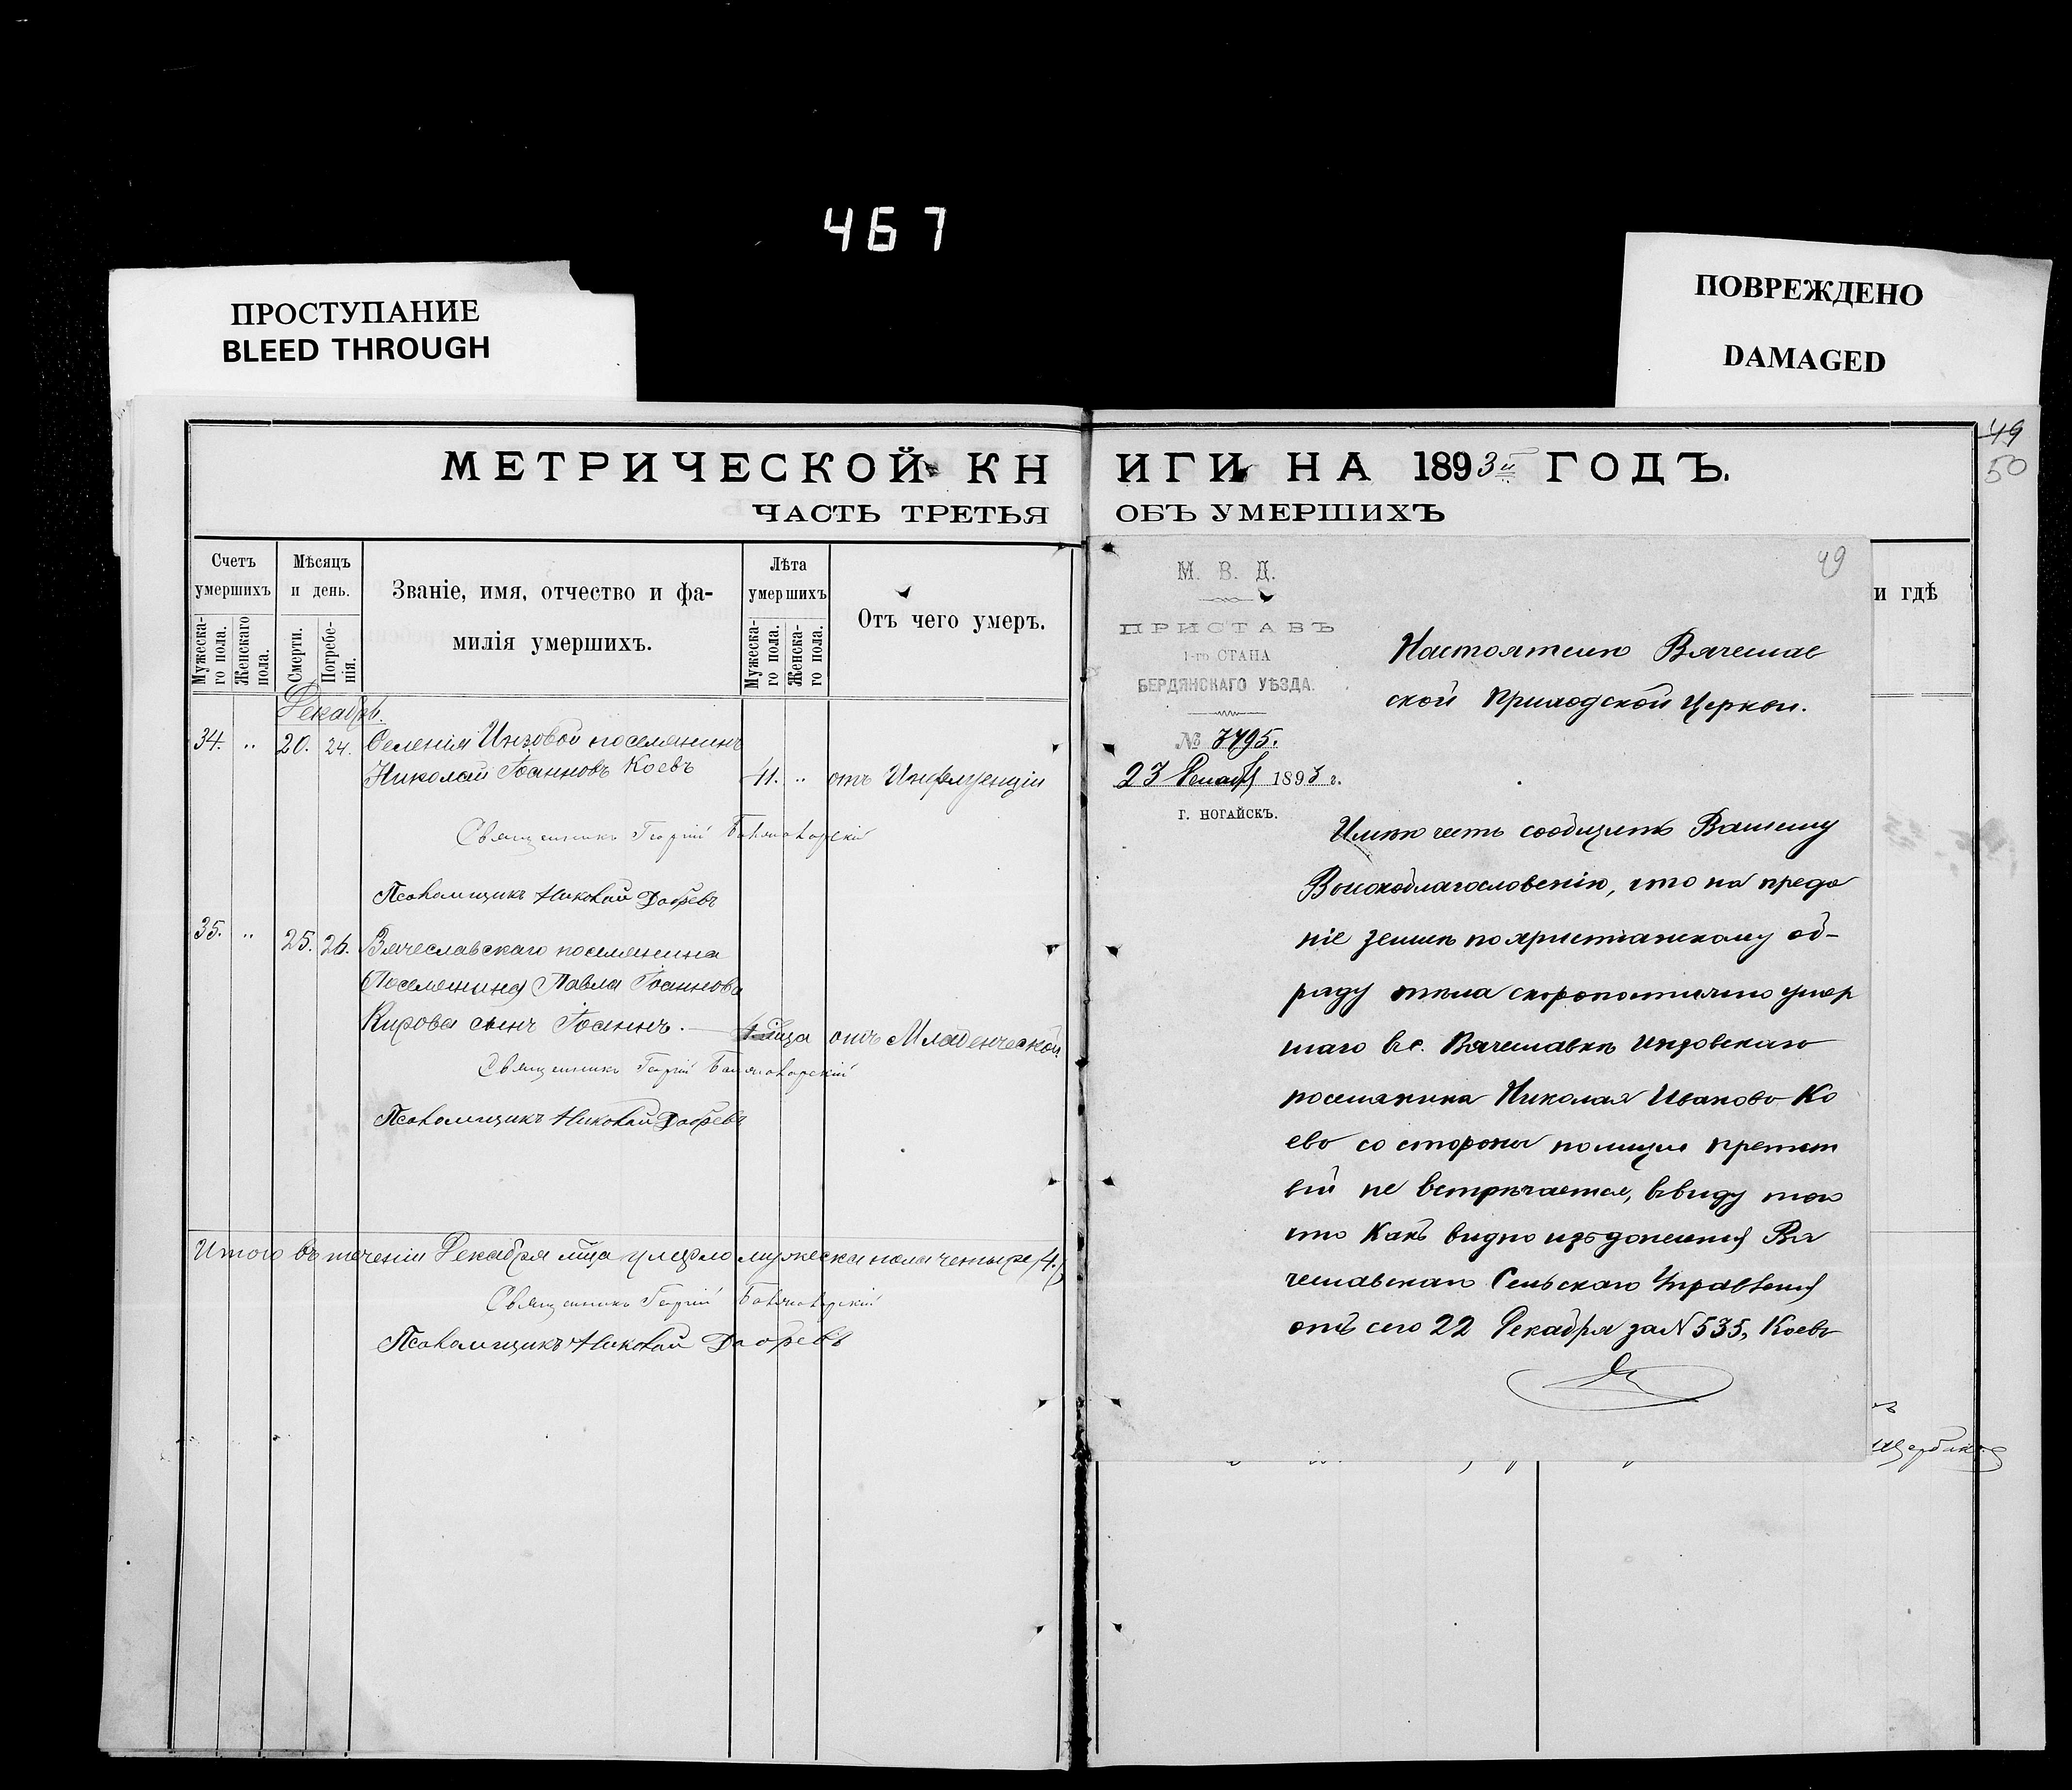 467
ПРОСТУПАНИЕ
BLEED THROUGH
ПОВРЕЖДЕНО
DAMAGED
МЕТРИЧЕСКОЙ КН
ЧАСТЬ ТРЕТЬЯ
Счетъ умершихъ
Мужеска-го пола.
Женскаго пола.
Мѣсяцъ и день.
Смерти.
Погребе-нія.
Званіе, имя, отчество и фа-
милія умершихъ.
Лѣта умершихъ
Мужеска-го пола.
Женска-го пола.
Отъ чего умеръ.
Декабрь.
34. " 20. 24. Селенія Инзовой поселянинъ
Николай Іоанновъ Коевъ 41. " отъ Инфлуенціи
Священникъ Георгій
Псаломщикъ Николай
35. " 25. 26. Вячеславскаго поселянина
Поселянина Павла Іоаннова
Кирова сынъ Іоаннъ. мца отъ Младенческой
Священникъ Георгій
Псаломщикъ Николай
Итого въ теченіи Декабря мца умерло мужеска пола четыре (4.)
Священникъ Георгій
Псаломщикъ Николай
ИГИ НА 1893й ГОДЪ.
ОБЪ УМЕРШИХЪ
49
50
и гдѣ
49
М. В. Д.
ПРИСТАВЪ
1-го СТАНА
БЕРДЯНСКАГО УѢЗДА.
№ 7795.
23 Декабря 1893 г.
г. НОГАЙСКЪ.
Настоятелю Вячеслав
ской Приходской Церкви.
Имѣю честь сообщить Вашему
Высокоблагословенію, что на преда
ніе землѣ по христіанскому об-
ряду тѣла скоропостижно умер
шаго въ с. Вячеславкѣ Инзовскаго
поселянина Николая Иванова Ко
ева со стороны полиціи препятст
вій не встрѣчается, ввиду того
что какъ видно изъ донесенія Вя
чеславскаго Сельскаго Управленія
отъ сего 22 Декабря за N 535, Коевъ